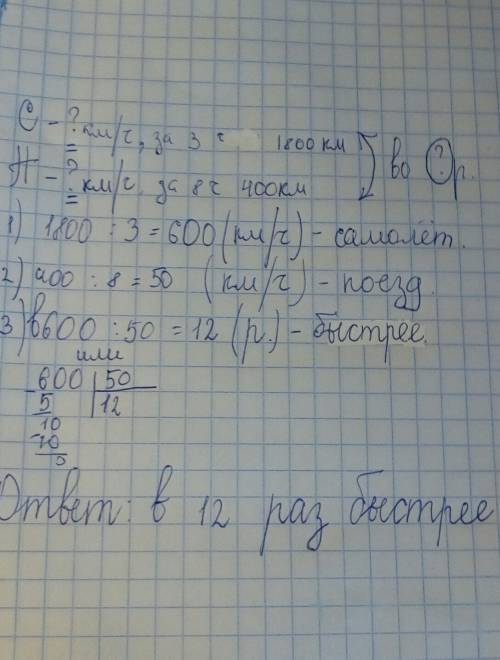 С - ? км/ч, за 3 ч 1800 км
П - ? км/ч, за 8 ч 400 км во ? р.
1) 1800 : 3 = 600 (км/ч) - самолёт.
2) 400 : 8 = 50 (км/ч) - поезд.
3) в 600 : 50 = 12 (р.) - быстрее.
или
- 600 | 50
5 | 12
10
- 10
0
Ответ: в 12 раз быстрее